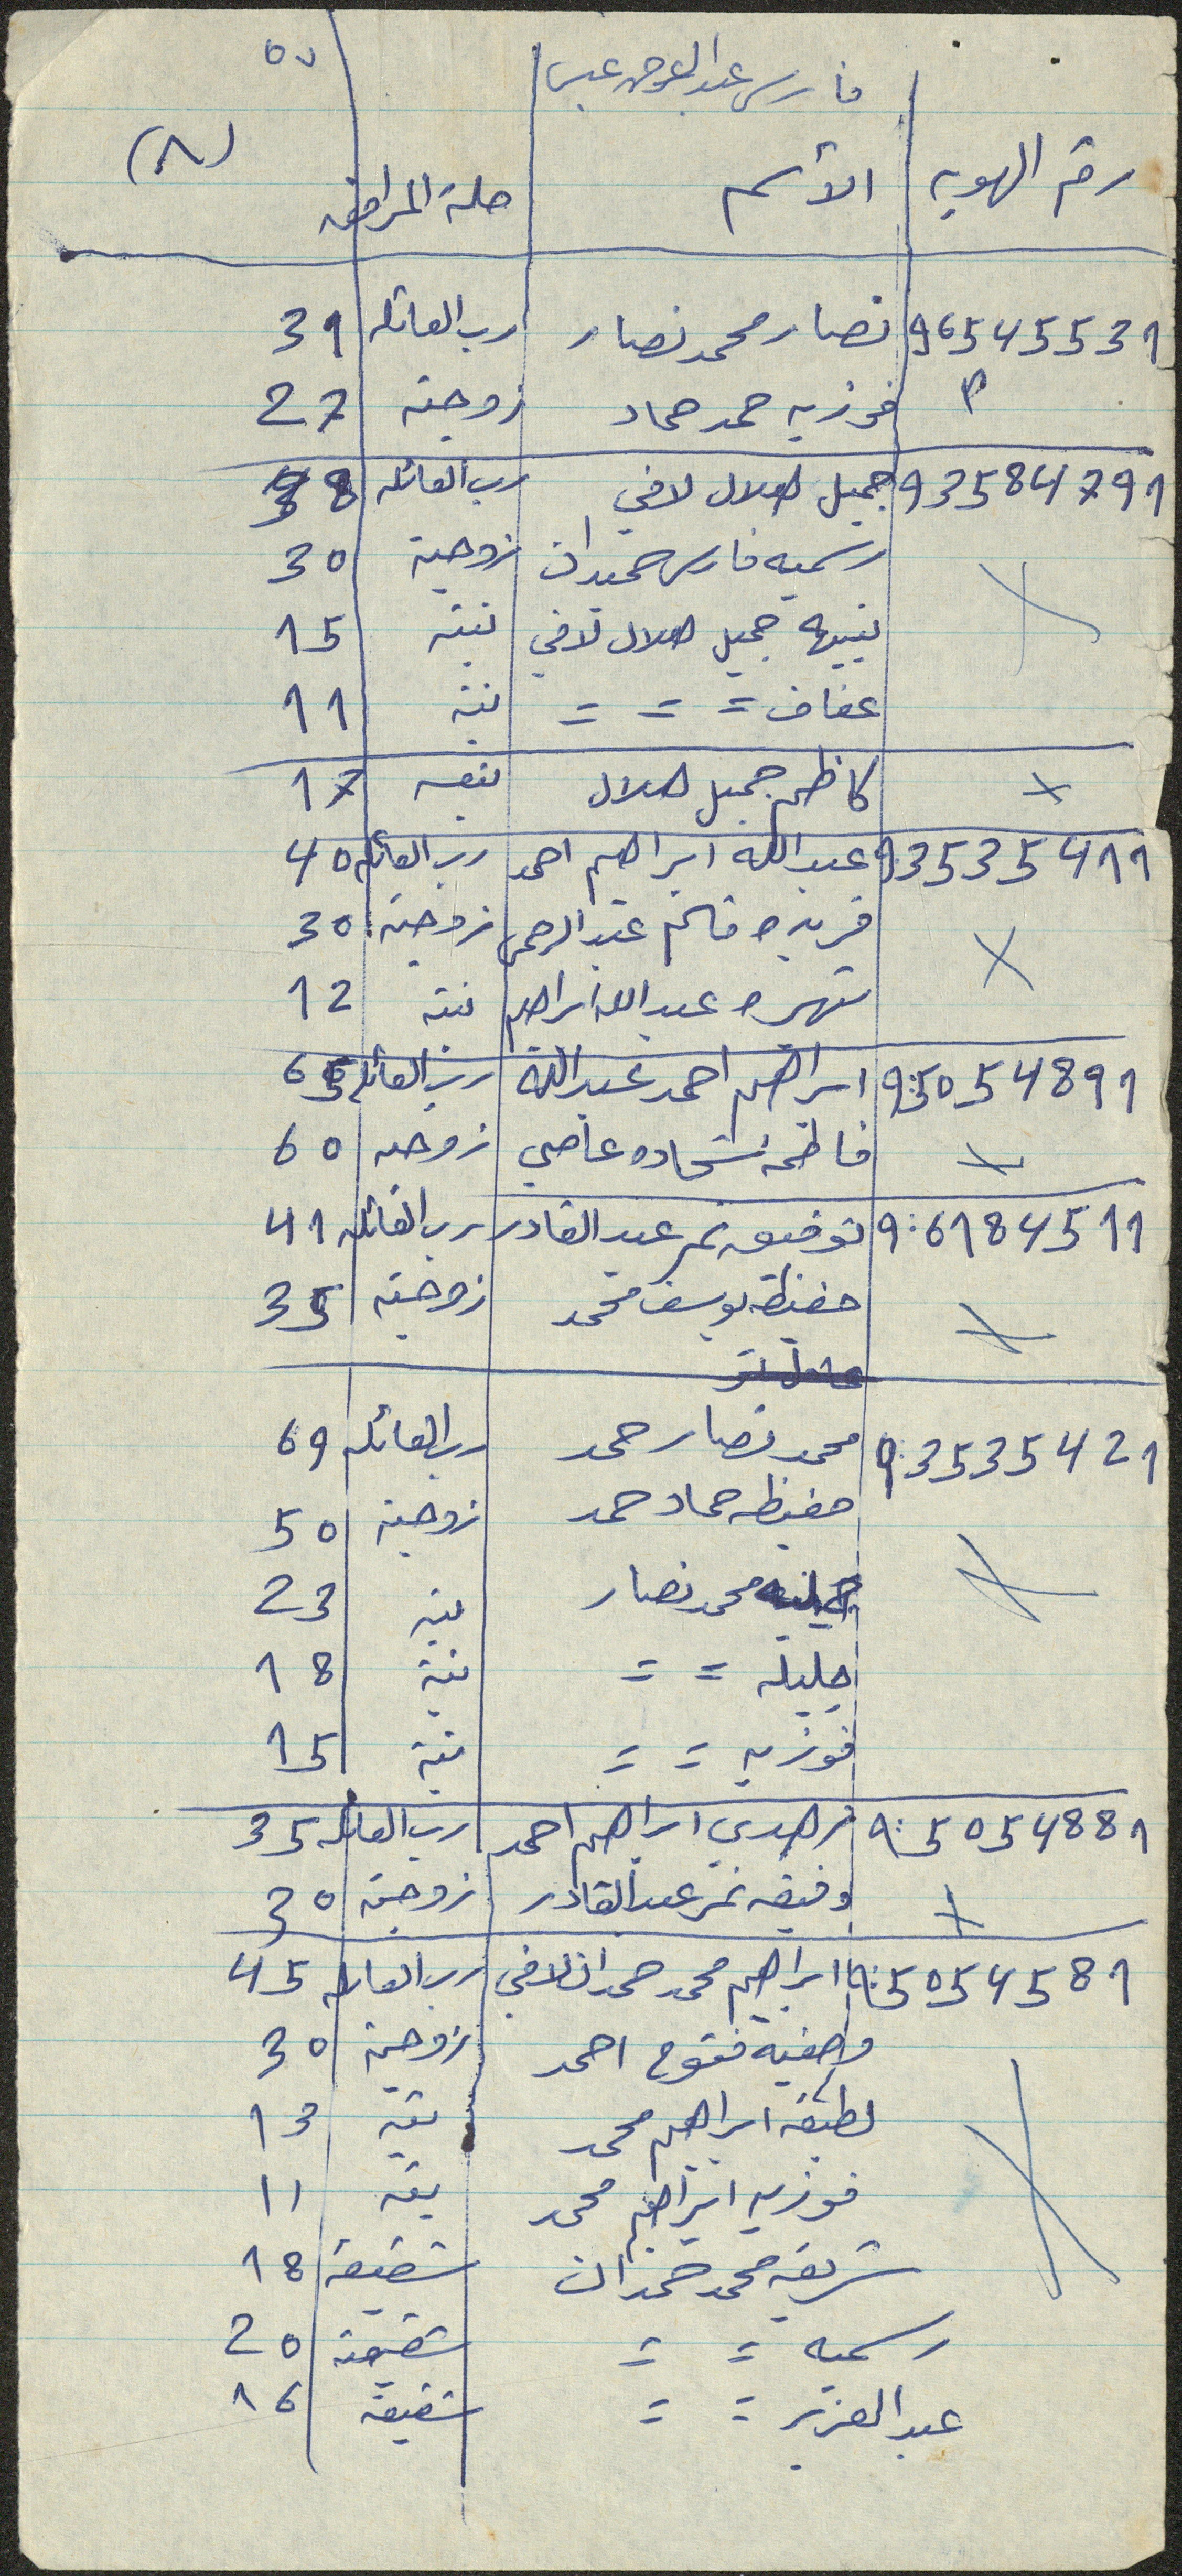 فارس عبد
(٨)
رقم الهويه الأسم صلة المرافقه
96545531 نصار محمد نصار رب العائله 31
فوزيه حمد حماد زوجته 27
93584791 جميل هلال لافي رب العائله 38
رسميه فارس حميدان زوجته 30
نبيهه جميل هلال لافي بنته 15
عفاف = = = بنته 11
كاظم جميل هلال 17
93535411 عبد الله ابراهيم احمد رب العائله 40
فريده قاسم عبد الرحمن زوجته 30
شهره عبد الله ابراهيم بنته 12
9:5054891 ابراهيم احمد عبد الله رب العائله 65
فاطمه شحاده عاصي زوجته 60
9:6184511 توفيق نمر عبد القادر رب العائله 41
حفيظه يوسف محمد زوجته 35
9:3535421 محمد نصار حمد رب العائله 69
حفيظه حماد حمد زوجته 50
محمد نصار بنته 23
جليله = = بنته 18
فوزيه = = بنته 15
9:5054881 ابراهيم احمد رب العائله 35
وفيقه نمر عبد القادر زوجته 30
9:5054581 ابراهيم محمد حمدان لافي رب العائله 45
وصفية فتوح احمد زوجته 30
لطيفه ابراهيم محمد بنته 13
فوزيه ابراهيم محمد بنته 11
شريفه محمد حمدان شقيقة 18
رسميه = = شقيقته 20
عبد العزيز = = شقيقه 16